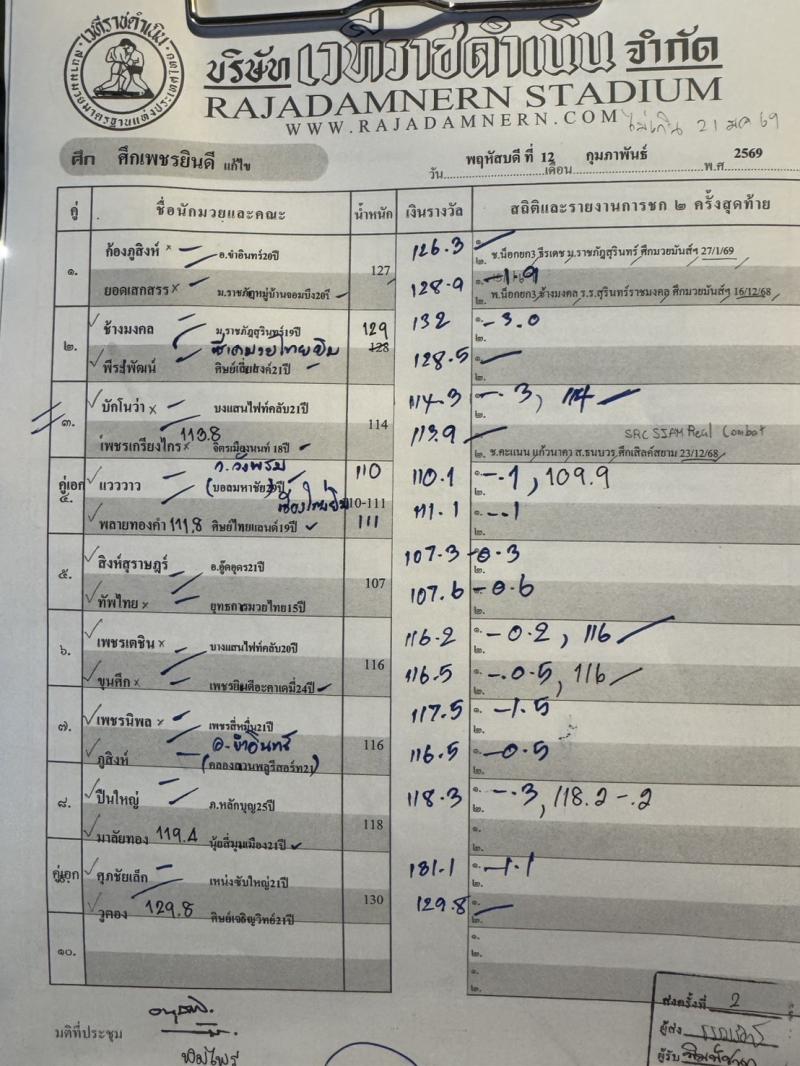 บริษัท เวทีราชดำเนิน จำกัด
RAJADAMNERN STADIUM
WWW.RAJADAMNERN.COM
ไม่เกิน 21 มค 69
ศึก ศึกเพชรยินดี แก้ไข
วัน พฤหัสบดี ที่ 12 เดือน กุมภาพันธ์ พ.ศ 2569
คู่ ชื่อนักมวยและคณะ น้ำหนัก เงินรางวัล สถิติและรายงานการชก ๒ ครั้งสุดท้าย
๑. ก้องภูสิงห์ × อ.ขำอินทร์20ปี 127 126.3 ๑.
๒. ช.น็อกยก3 ธีรเดช ม.ราชภัฎสุรินทร์ ศึกมวยมันส์ฯ 27/1/69
ยอดเสกสรร × ม.ราชภัฎหมู่บ้านจอมบึง20ปี 128.9 ๑. -1.9
๒. พ.น็อกยก3 ช้างมงคล ร.ร.สุรินทร์ราชมงคล ศึกมวยมันส์ฯ 16/12/68
๒. ช้างมงคล ม.ราชภัฎสุรินทร์19ปี 129 128 132 ๑. -3.0
๒.
พีรพัฒน์ 128.5 ๑.
๒.
๓. บักโนว่า × บงแสนไฟท์คลับ21ปี 114 114.3 ๑. -.3, 114
๒.
เพชรเกรียงไกร × 113.8 จิตรเมืองนนท์ 18ปี 113.9 ๑. SRC SIAM Real Combat
๒. ช.คะแนน แก้วนาคา ส.ธนบวร ศึกเสิลค์สยาม 23/12/68
คู่เอก ๔. แวววาว (บอลมหาชัย 110 110.1 ๑. -.1, 109.9
๒.
110-111
พลายทองคำ 111.8 ศิษย์ไทยแลนด์19ปี 111 111.1 ๑. -.1
๒.
๕. สิงห์สุราษฎร์ อ.อู๊ดอุดร21ปี 107 107.3 ๑. -0.3
๒.
ทัพไทย × ยุทธการมวยไทย15ปี 107.6 ๑. -0.6
๒.
๖. เพชรเดชิน × บางแสนไฟท์คลับ20ปี 116 116.2 ๑. -0.2, 116
๒.
ขุนศึก × เพชรยินดีอะคาเดมี่24ปี 116.5 ๑. -0.5, 116
๒.
๗. เพชรนิพล × เพชรสี่หมื่น21ปี 116 117.5 ๑. -1.5
๒.
ภูสิงห์ อ.ขำอินทร์ (คลองลานพลูรีสอร์ท21) 116.5 ๑. -0.5
๒.
๘. ปืนใหญ่ ภ.หลักบุญ25ปี 118 118.3 ๑. -.3, 118.2 -.2
๒.
มาลัยทอง 119.4 นุ้ยสี่มุมเมือง21ปี ๑.
๒.
คู่เอก ศุภชัยเล็ก เหน่งซับใหญ่21ปี 130 131.1 ๑. -1.1
๒.
วูคอง 129.8 ศิษย์เจริญวิทย์21ปี 129.8 ๑.
๒.
๑๐. ๑.
๒.
๑.
๒.
มติที่ประชุม
พิมไพร
ส่งครั้งที่ 2
ผู้ส่ง
ผู้รับ